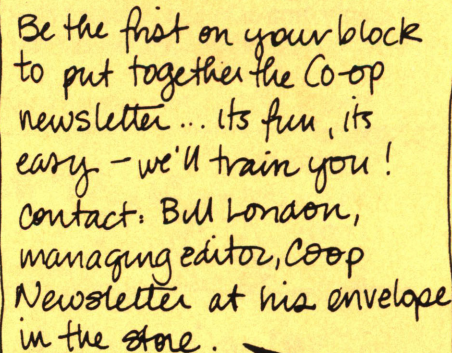 Be the first on your block
to put together the Co-op
newsletter... its fun, its
easy - we'll train you!
contact: Bill London,
managing editor, Coop
Newsletter at his envelope
in the store.